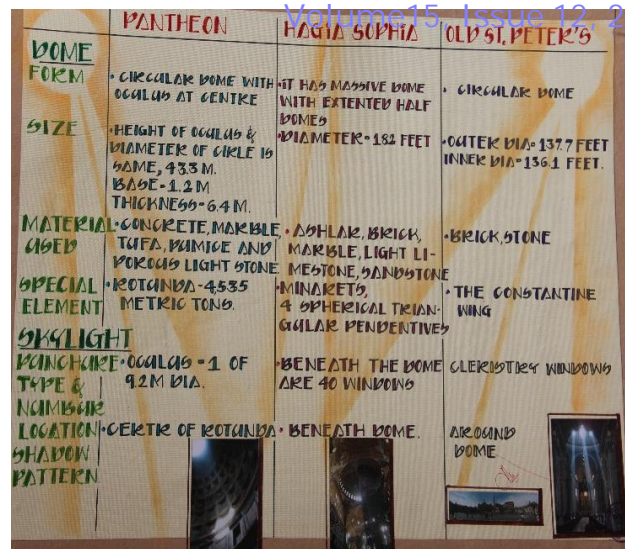 Volume15, Issue 12, 2
PANTHEON
HAGIA SOPHIA
OLD ST. PETER'S
DOME
FORM
• CIRCULAR DOME WITH
OCULUS AT CENTRE
• IT HAS MASSIVE DOME
WITH EXTENTED HALF
DOMES
• CIRCULAR DOME
SIZE
• HEIGHT OF OCULUS &
DIAMETER OF CIRLE IS
SAME, 43.3 M.
BASE - 1.2 M
THICKNESS - 6.4 M.
• DIAMETER - 182 FEET
• OUTER DIA- 137.7 FEET
INNER DIA- 136.1 FEET.
MATERIAL
USED
• CONCRETE, MARBLE,
TUFA, PUMICE AND
POROUS LIGHT STONE
• ASHLAR, BRICK,
MARBLE, LIGHT LI-
MESTONE, SANDSTONE
• BRICK, STONE
SPECIAL
ELEMENT
• ROTUNDA - 4535
METRIC TONS.
• MINARETS,
4 SPHERICAL TRIAN-
GULAR PENDENTIVES
• THE CONSTANTINE
WING
SKYLIGHT
PUNCHURE
TYPE &
NUMBUR
• OCULUS - 1 OF
9.2M DIA.
• BENEATH THE DOME
ARE 40 WINDOWS
CLERISTRY WINDOWS
LOCATION
• CERTR OF ROTUNDA
• BENEATH DOME.
AROUND
DOME
SHADOW
PATTERN